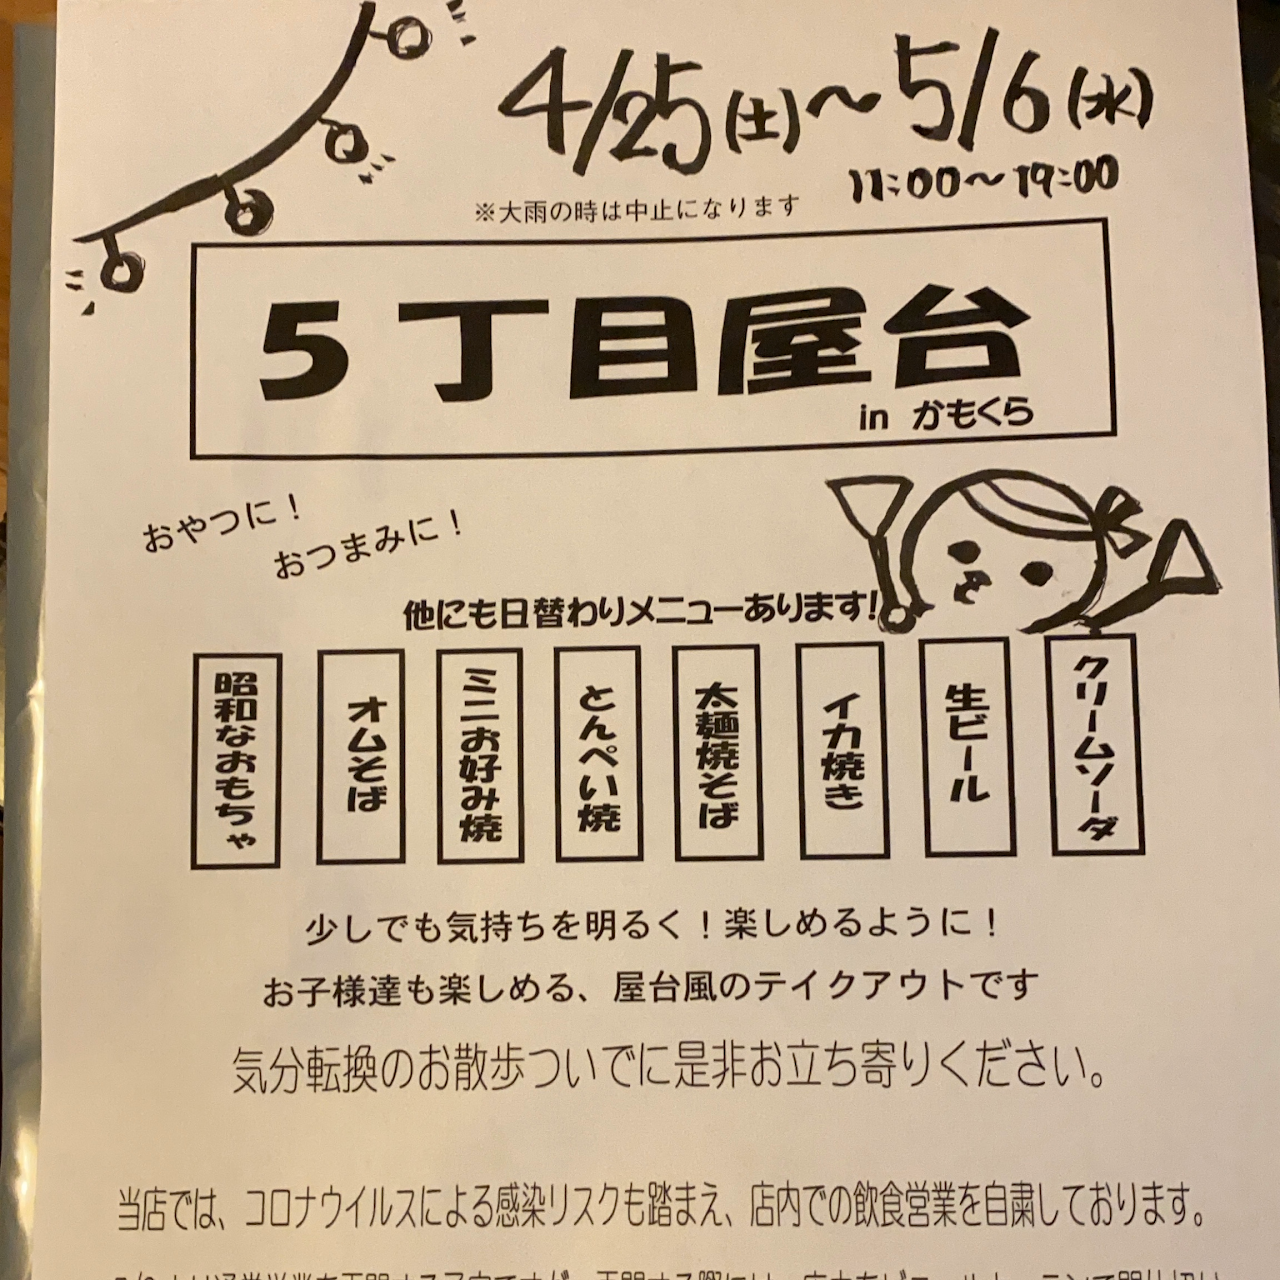 4/25(土)〜5/6(水)
11:00〜19:00
※大雨の時は中止になります
5丁目屋台
in かもくら
おやつに！
おつまみに！
他にも日替わりメニューあります!
クリームソーダ
生ビール
イカ焼き
太麺焼そば
とんぺい焼
ミニお好み焼
オムそば
昭和なおもちゃ
少しでも気持ちを明るく！楽しめるように！
お子様達も楽しめる、屋台風のテイクアウトです
気分転換のお散歩ついでに是非お立ち寄りください。
当店では、コロナウイルスによる感染リスクも踏まえ、店内での飲食営業を自粛しております。